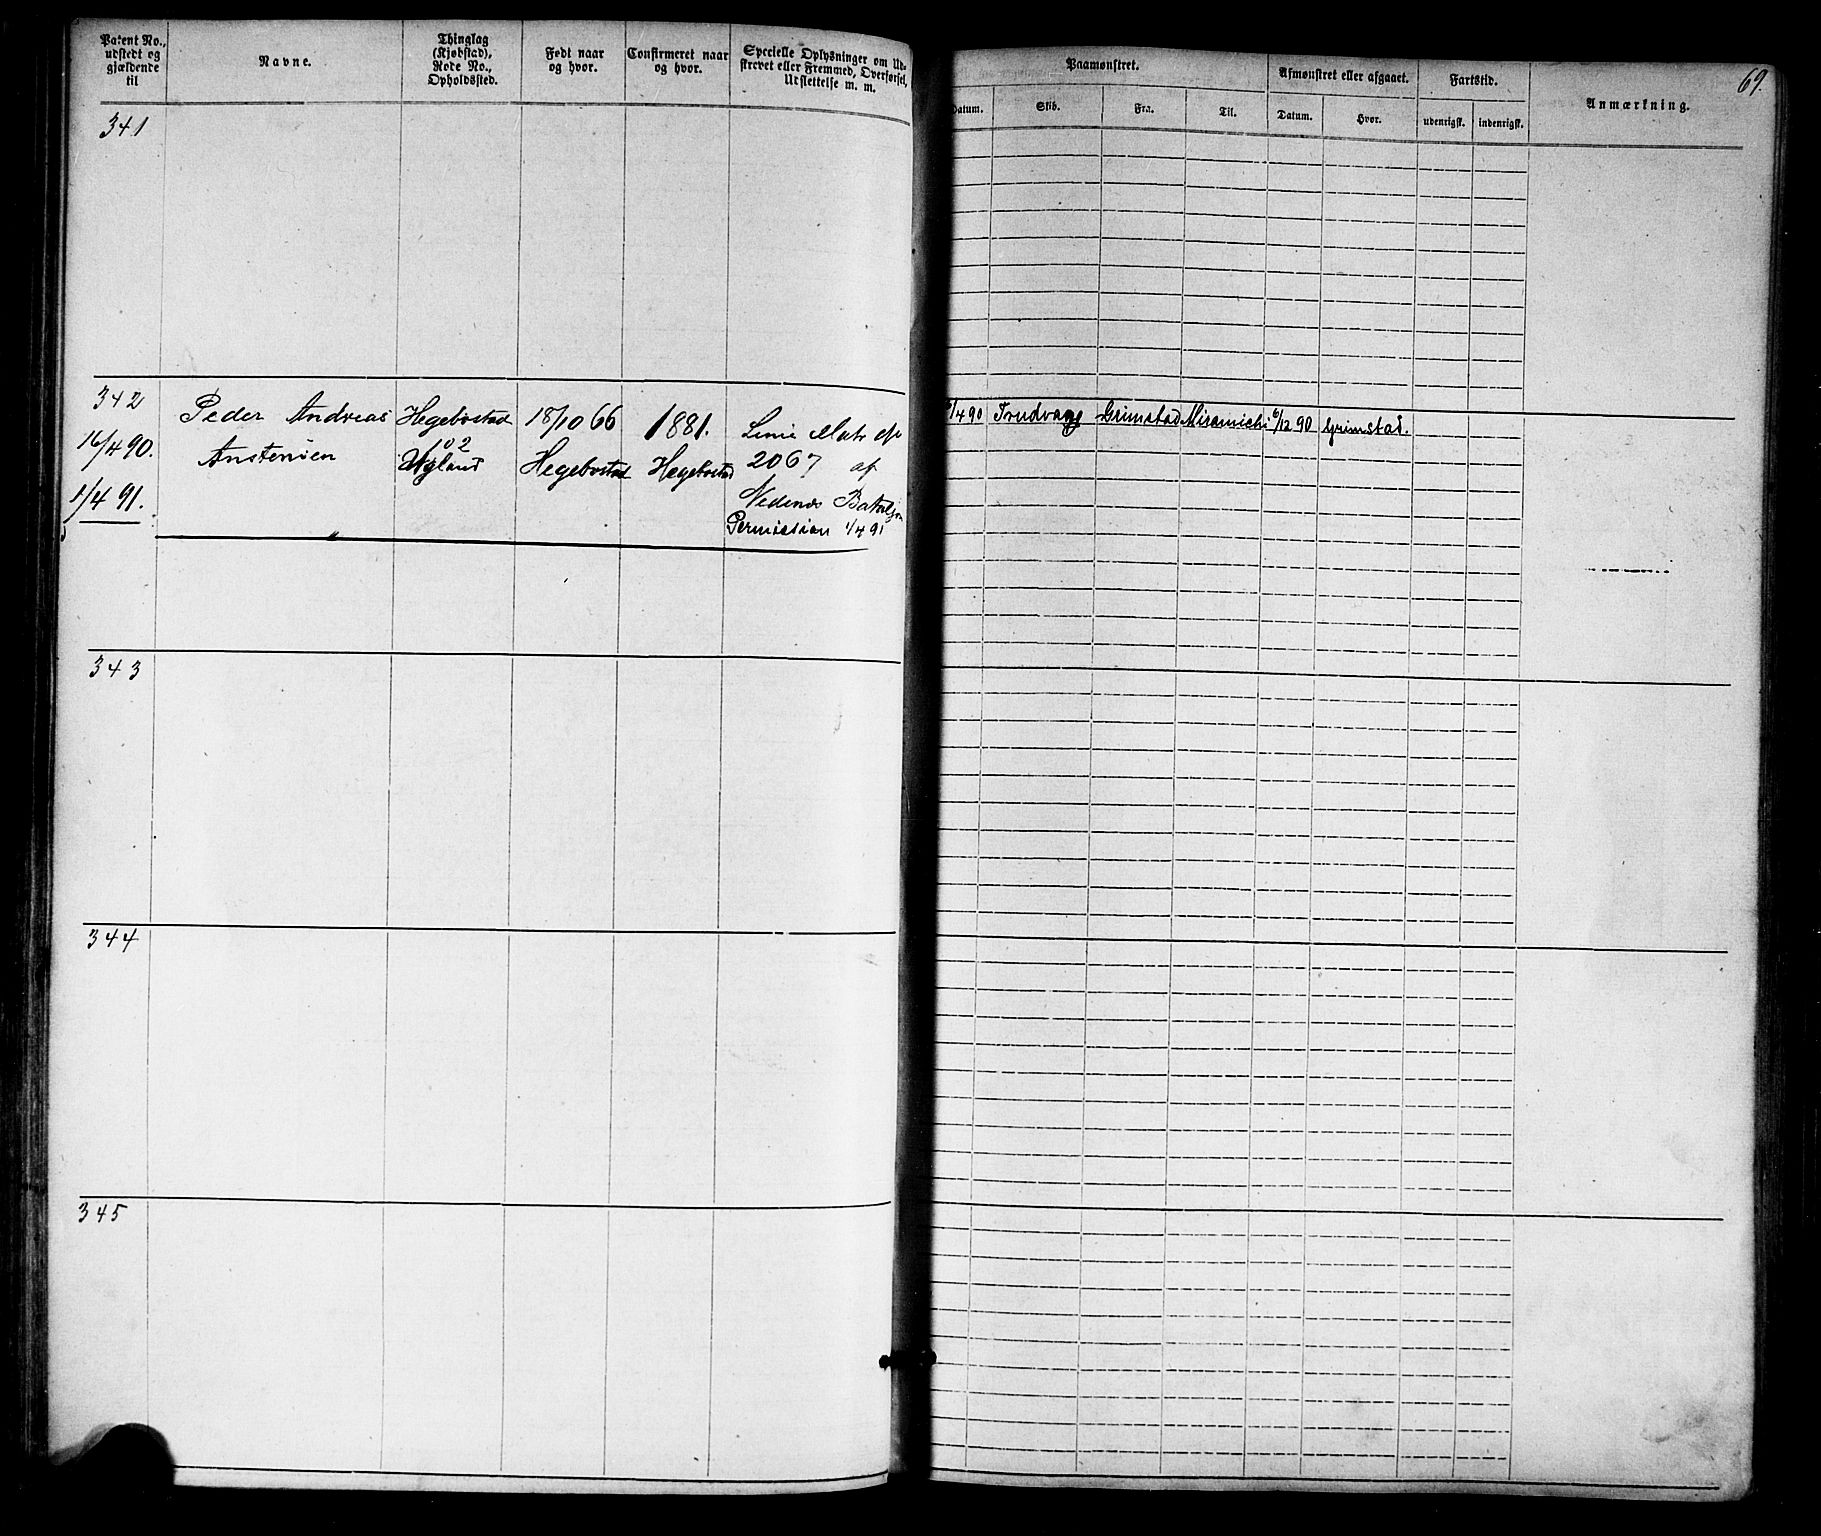 Patent No., udstedt og gjældende til
Navne.
Thinglag (Kjøbstad), Rode No., Opholdssted.
Født naar og hvor.
Confirmeret naar og hvor.
Specielle Oplysninger om Udskrevet eller Fremmed, Overførsel, Udslettelse m. m.
Paamønstret.
Datum.
Skib.
Fra.
Til.
Afmønstret eller afgaaet.
Datum.
Hvor.
Fartstid.
udenrigsk.
indenrigsk.
Anmærkning.
69.
341
342
16/4 90.
1/4 91.
Peder Andreas
Anstensen
Hegebostad
102
18/10 66
Hegebostad
1881.
Hegebostad
Linie
2067 af
Nedenæs Bataljon
Permission 1/4 91
/4 90 Trudvang Grimstad Miramichi 6/12 90 Grimstad.
343
344
345